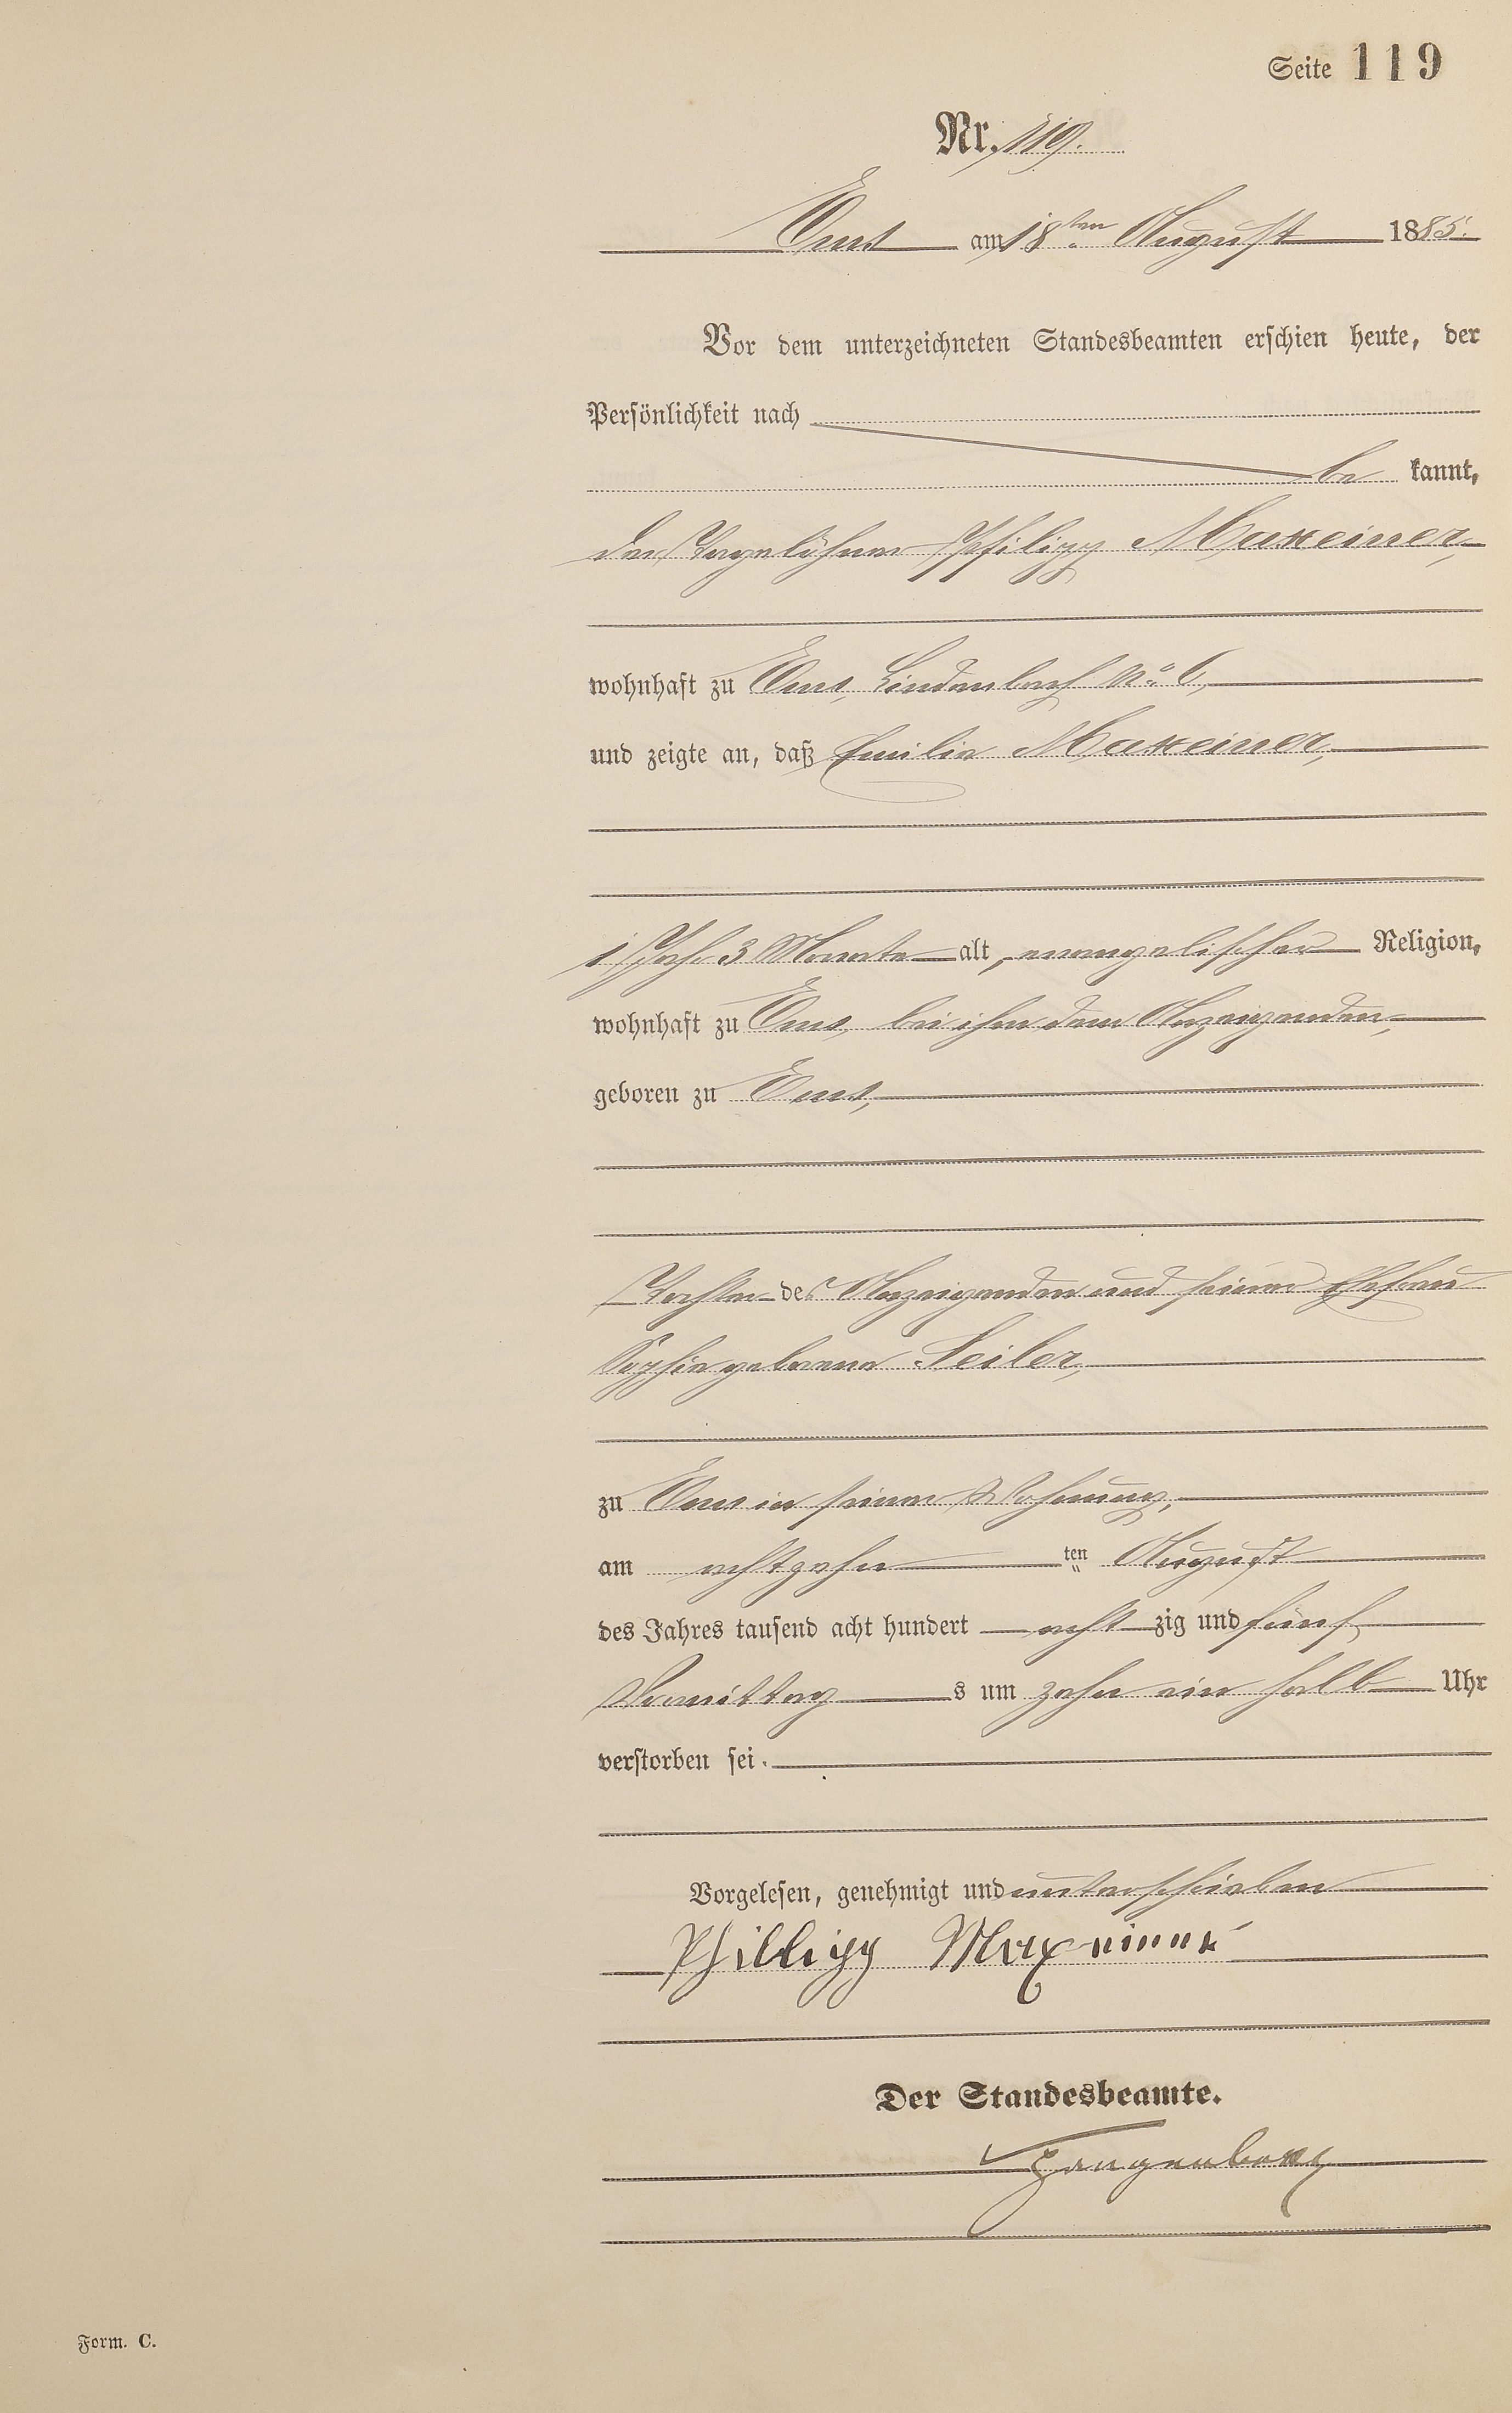 Seite 119
Nr. 119.
Ems am 18ten August 1885.
Vor dem unterzeichneten Standesbeamten erschien heute, der
Persönlichkeit nach
be kannt,
der Tagelöhner Philipp Maxeiner,
wohnhaft zu Ems, Lindenbach No. 6,
und zeigte an, daß Emilie Maxeiner,
1 Jahr 3 Monate alt, evangelischer Religion,
wohnhaft zu Ems, bei ihm dem Anzeigenden,
geboren zu Ems,
Tochter des Anzeigenden und seiner Ehefrau
Sophie geborene Seiler,
zu Ems in seiner Wohnung,
am achtzehn ten August
des Jahres tausend acht hundert acht zig und fünf
Vormittag s um zehn ein halb Uhr
verstorben sei.
Vorgelesen, genehmigt und unterschrieben
Phillipp Maxeiner
Der Standesbeamte.
Form. C.